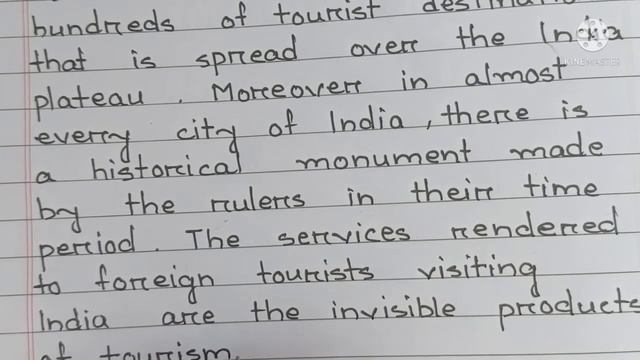 hundreds of tourist
that is spread over the India
plateau. Moreover in almost
every city of India, there is
a historical monument made
by the rulers in their time
period. The services rendered
to foreign tourists visiting
India are the invisible products
of tourism.
KINEMASTER